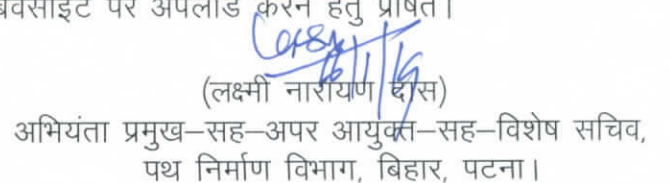 वेवसाइट पर अपलोड करने हेतु प्रेषित।
16/1/19
(लक्ष्मी नारायण दास)
अभियंता प्रमुख–सह–अपर आयुक्त–सह–विशेष सचिव,
पथ निर्माण विभाग, बिहार, पटना।